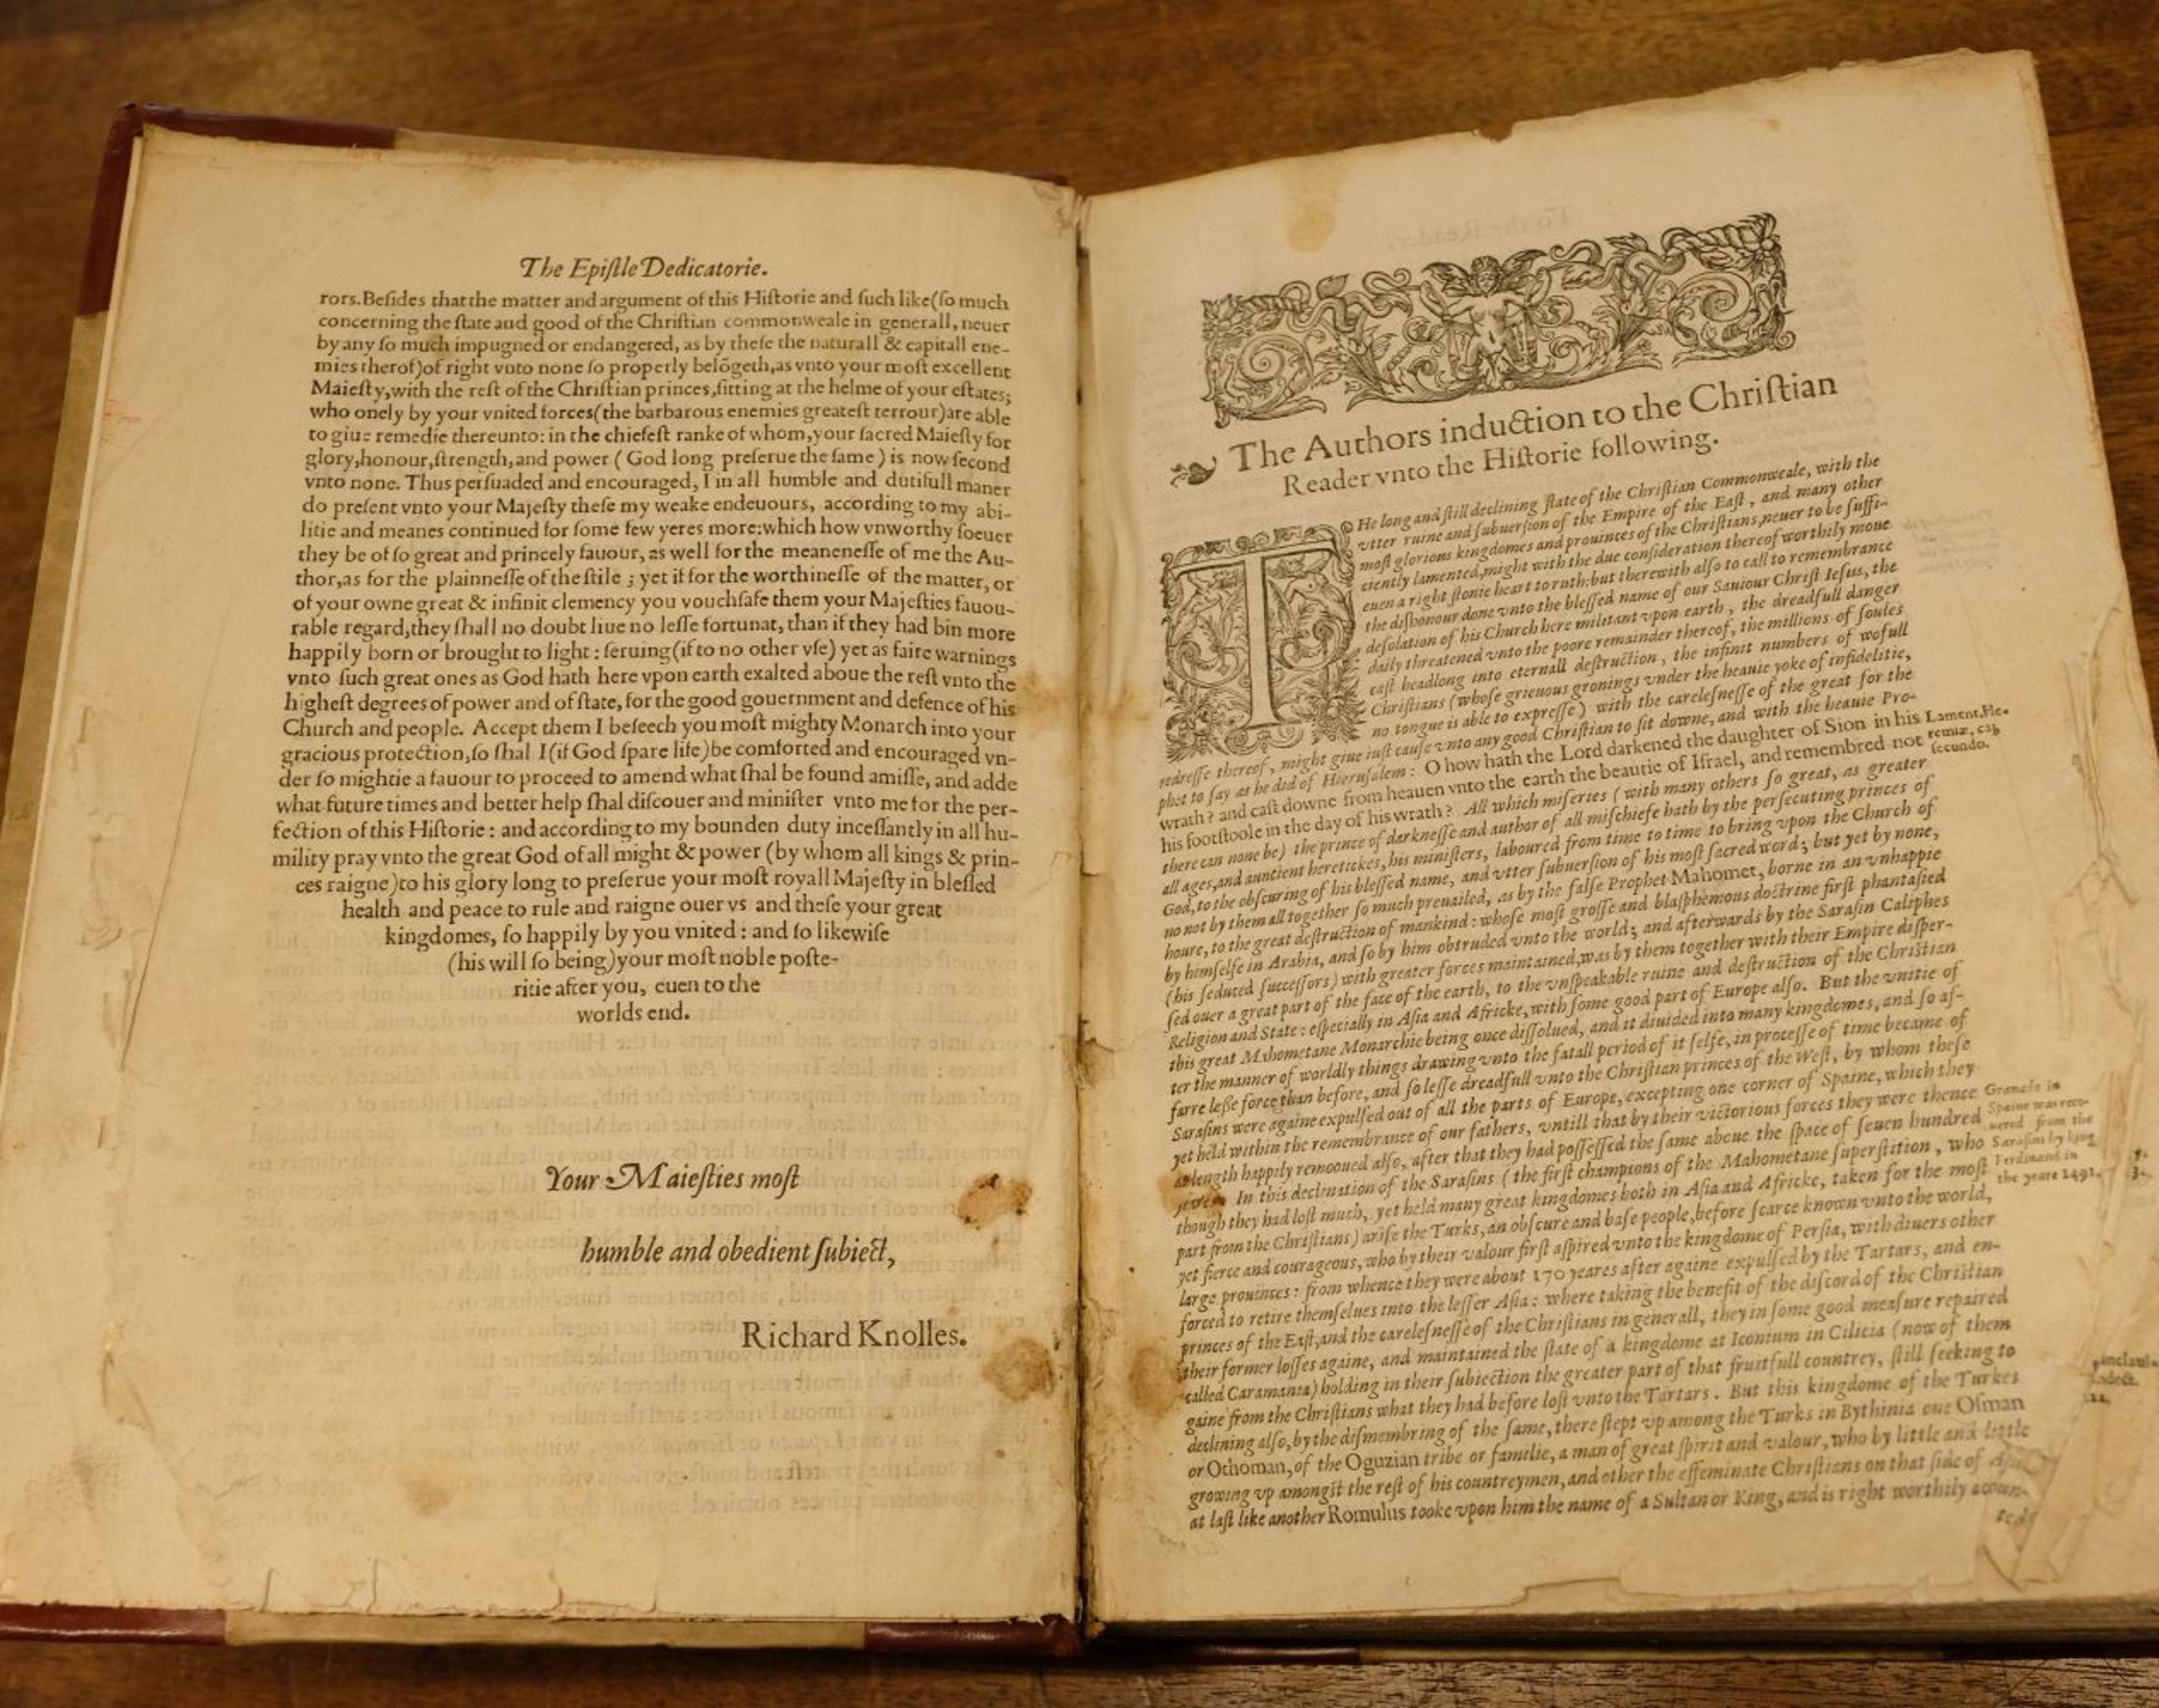 The Epiſtle Dedicatorie.
rors. Beſides that the matter and argument of this Hiſtorie and ſuch like (ſo much
concerning the ſtate and good of the Chriſtian commonweale in generall, neuer
by any ſo much impugned or endangered, as by theſe the naturall & capitall ene-
mies therof) of right vnto none ſo properly belõgeth, as vnto your moſt excellent
Maieſty, with the reſt of the Chriſtian princes, ſitting at the helme of your eſtates;
who onely by your vnited forces (the barbarous enemies greateſt terrour) are able
to giue remedie thereunto: in the chiefeſt ranke of whom, your ſacred Maieſty for
glory, honour, ſtrength, and power (God long preſerue the ſame) is now ſecond
vnto none. Thus perſuaded and encouraged, I in all humble and dutifull maner
do preſent vnto your Majeſty theſe my weake endeuours, according to my abi-
litie and meanes continued for ſome few yeres more: which how vnworthy ſoeuer
they be of ſo great and princely fauour, as well for the meaneneſſe of me the Au-
thor, as for the plainneſſe of the ſtile; yet if for the worthineſſe of the matter, or
of your owne great & infinit clemency you vouchſafe them your Majeſties fauou-
rable regard, they ſhall no doubt liue no leſſe fortunat, than if they had bin more
happily born or brought to light: ſeruing (if to no other vſe) yet as faire warnings
vnto ſuch great ones as God hath here vpon earth exalted aboue the reſt vnto the
higheſt degrees of power and of ſtate, for the good gouernment and defence of his
Church and people. Accept them I beſeech you moſt mighty Monarch into your
gracious protection, ſo ſhal I (if God ſpare life) be comforted and encouraged vn-
der ſo mightie a fauour to proceed to amend what ſhal be found amiſſe, and adde
what future times and better help ſhal diſcouer and miniſter vnto me for the per-
fection of this Hiſtorie: and according to my bounden duty inceſſantly in all hu-
mility pray vnto the great God of all might & power (by whom all kings & prin-
ces raigne) to his glory long to preſerue your moſt royall Majeſty in bleſſed
health and peace to rule and raigne ouer vs and theſe your great
kingdomes, ſo happily by you vnited: and ſo likewiſe
(his will ſo being) your moſt noble poſte-
ritie after you, euen to the
worlds end.
Your Maieſties moſt
humble and obedient ſubiect,
Richard Knolles.
The Authors induction to the Chriſtian
Reader vnto the Hiſtorie following.
THe long and ſtill declining ſtate of the Chriſtian Commonweale, with the
vtter ruine and ſubuerſion of the Empire of the Eaſt, and many other
moſt glorious kingdomes and prouinces of the Chriſtians, neuer to be ſuffi-
ciently lamented, might with the due conſideration thereof worthily moue
euen a right ſtonie heart to ruth: but therewith alſo to call to remembrance
the diſhonour done vnto the bleſſed name of our Sauiour Chriſt Ieſus, the
deſolation of his Church here militant vpon earth, the dreadfull danger
daily threatened vnto the poore remainder thereof, the millions of ſoules
caſt headlong into eternall deſtruction, the infinit numbers of wofull
Chriſtians (whoſe grieuous gronings vnder the heauie yoke of infidelitie,
no tongue is able to expreſſe) with the careleſneſſe of the great for the
redreſſe thereof, might giue iuſt cauſe vnto any good Chriſtian to ſit downe, and with the heauie Pro-
phet to ſay as he did of Hieruſalem: O how hath the Lord darkened the daughter of Sion in his
wrath? and caſt downe from heauen vnto the earth the beautie of Iſrael, and remembred not
his footſtoole in the day of his wrath? All which miſeries (with many others ſo great, as greater
there can none be) the prince of darkneſſe and author of all miſchiefe hath by the perſecuting princes of
all ages, and auntient heretickes, his miniſters, laboured from time to time to bring vpon the Church of
God, to the obſcuring of his bleſſed name, and vtter ſubuerſion of his moſt ſacred word; but yet by none,
no not by them all together ſo much preuailed, as by the falſe Prophet Mahomet, borne in an vnhappie
houre, to the great deſtruction of mankind: whoſe moſt groſſe and blaſphemous doctrine firſt phantaſied
by himſelfe in Arabia, and ſo by him obtruded vnto the world; and afterwards by the Saraſin Caliphes
(his ſeduced ſucceſſors) with greater forces maintained, was by them together with their Empire diſper-
ſed ouer a great part of the face of the earth, to the vnſpeakable ruine and deſtruction of the Chriſtian
Religion and State: eſpecially in Aſia and Africke, with ſome good part of Europe alſo. But the vnitie of
this great Mahometane Monarchie being once diſſolued, and it diuided into many kingdomes, and ſo af-
ter the manner of worldly things drawing vnto the fatall period of it ſelfe, in proceſſe of time became of
farre leſſe force than before, and ſo leſſe dreadfull vnto the Chriſtian princes of the Weſt, by whom theſe
Saraſins were againe expulſed out of all the parts of Europe, excepting one corner of Spaine, which they
yet held within the remembrance of our fathers, vntill that by their victorious forces they were thence
at length happily remooued alſo, after that they had poſſeſſed the ſame aboue the ſpace of ſeuen hundred
yeares. In this declination of the Saraſins (the firſt champions of the Mahometane ſuperſtition, who
though they had loſt much, yet held many great kingdomes both in Aſia and Africke, taken for the moſt
part from the Chriſtians) ariſe the Turks, an obſcure and baſe people, before ſcarce known vnto the world,
yet fierce and courageous, who by their valour firſt aſpired vnto the kingdome of Perſia, with diuers other
large prouinces: from whence they were about 170 yeares after againe expulſed by the Tartars, and en-
forced to retire themſelues into the leſſer Aſia: where taking the benefit of the diſcord of the Chriſtian
princes of the Eaſt, and the careleſneſſe of the Chriſtians in generall, they in ſome good meaſure repaired
their former loſſes againe, and maintained the ſtate of a kingdome at Iconium in Cilicia (now of them
called Caramania) holding in their ſubiection the greater part of that fruitfull countrey, ſtill ſeeking to
gaine from the Chriſtians what they had before loſt vnto the Tartars. But this kingdome of the Turkes
declining alſo, by the diſmembring of the ſame, there ſtept vp among the Turks in Bythinia one Oſman
or Othoman, of the Oguzian tribe or familie, a man of great ſpirit and valour, who by little and little
growing vp amongſt the reſt of his countreymen, and other the effeminate Chriſtians on that ſide of Aſia
at laſt like another Romulus tooke vpon him the name of a Sultan or King, and is right worthily accoun-
ted
Lament. He-
remiæ, cap.
ſecundo.
Granado in
Spaine was reco-
uered from the
Saraſins by king
Ferdinand in
the yeare 1491.